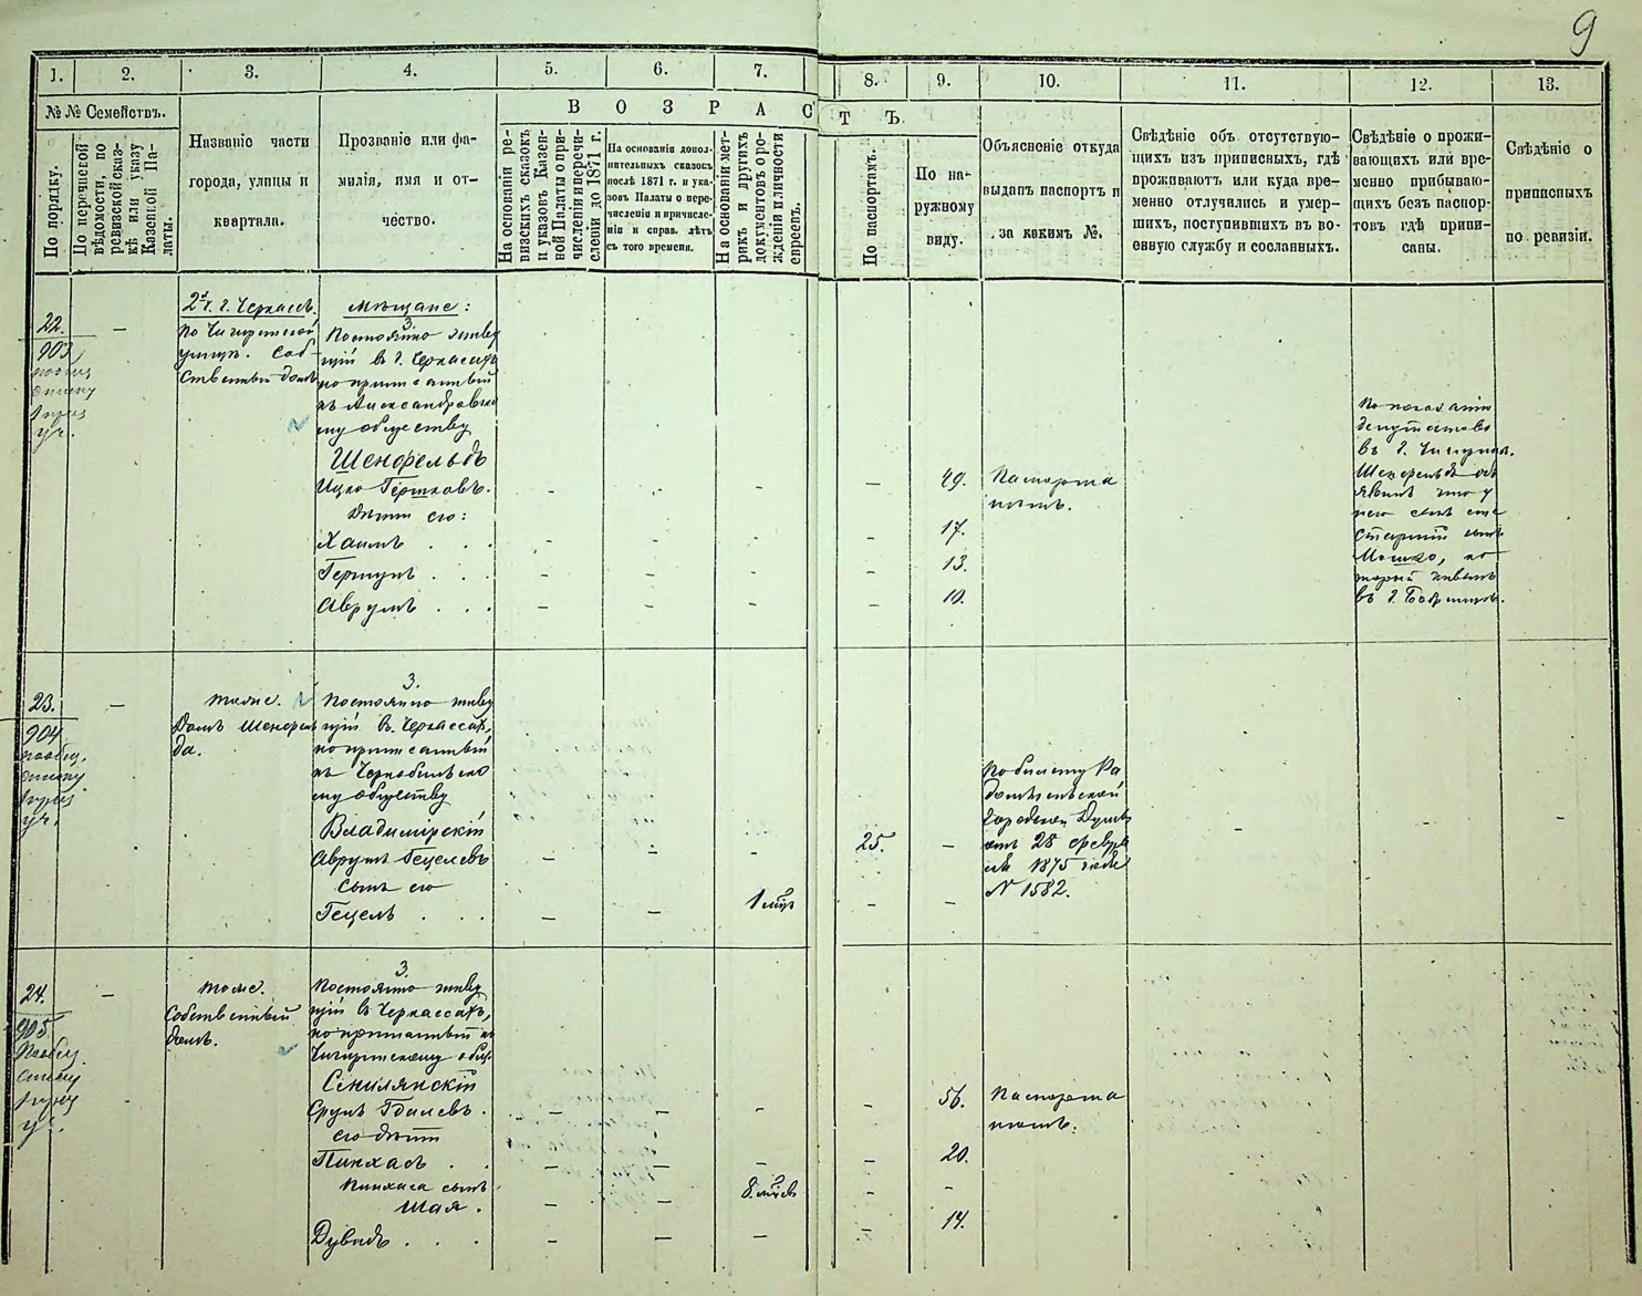 9
1. 2. 3. 4. 5. 6. 7. 8. 9. 10. 11. 12. 13.
№ № Семействъ.
По порядку.
По перечневой
вѣдомости, по
ревизской сказ-
кѣ или указу
Казенной Па-
латы.
Названіе части
города, улицы и
квартала.
Прозваніе или фа-
милія, имя и от-
чество.
ВОЗРАСТЪ.
На основаніи ре-
визскихъ сказокъ
и указовъ Казен-
ной Палаты о при-
численіи и перечи-
сленіи до 1871 г.
На основаніи допол-
нительныхъ сказокъ
послѣ 1871 г. и ука-
зовъ Палаты о пере-
численіи и причисле-
ніи и справ. лѣтъ
съ того времени.
На основаніи мет-
рикъ и другихъ
документовъ о ро-
жденіи и личности
евреевъ.
По паспортамъ.
По на-
ружному
виду.
Объясненіе откуда
выданъ паспортъ и
за какимъ №.
Свѣдѣніе объ отсутствую-
щихъ изъ приписныхъ, гдѣ
проживаютъ или куда вре-
менно отлучились и умер-
шихъ, поступившихъ въ во-
енную службу и сосланныхъ.
Свѣдѣніе о прожи-
вающихъ или вре-
менно прибываю-
щихъ безъ паспор-
товъ гдѣ припи-
саны.
Свѣдѣніе о
приписныхъ
по ревизіи.
22.
903
уч.
2 ч. г. Черкассъ.
по Чигиринской
улицѣ. Соб-
ственный домъ
Мѣщане:
3
Постоянно живу
щій въ г. Черкассахъ
но приписанный
къ Александровско
му обществу
Шенфельдъ
Ицко Гершковъ. - - - — 49.
Дѣти его:
Хаимъ . . . - - - - 17.
Гершунъ . . . - - - - 13.
Аврумъ . . . - - - - 10.
Паспорта
нѣтъ.
По показанію
депутатовъ
въ г. Чигирина.
Шенфельдъ объ
явилъ что у
него есть еще
старшій сынъ
Мошко, ко-
торый живетъ
въ г. Бобринцѣ.
23.
904
по общ.
списку
уч.
тоже.
Домъ Шенфель
да.
3.
Постоянно живу
щій въ Черкассахъ,
но приписанный
къ Чернобыльско
му обществу
Владимірскій
Аврумъ Гецелевъ — - - 25. -
сынъ его
Гецель . . . — — 1 - -
По билету Ра
домысльской
Городской Думы
отъ 28 февра
ля 1875 года
№ 1582.
24.
905
По общ.
списку
уч.
тоже.
Собственный
домъ.
3.
Постоянно живу
щій въ Черкассахъ,
но приписанный къ
Чигиринскому общ.
Сенилянскій
Срулъ Гдалевъ. — — - - 56.
его дѣти
Пинхасъ . . — — - - 20.
Пинхаса сынъ
Шая . — — 8 - -
Дувидъ . . . — — - - 14.
Паспорта
нѣтъ.